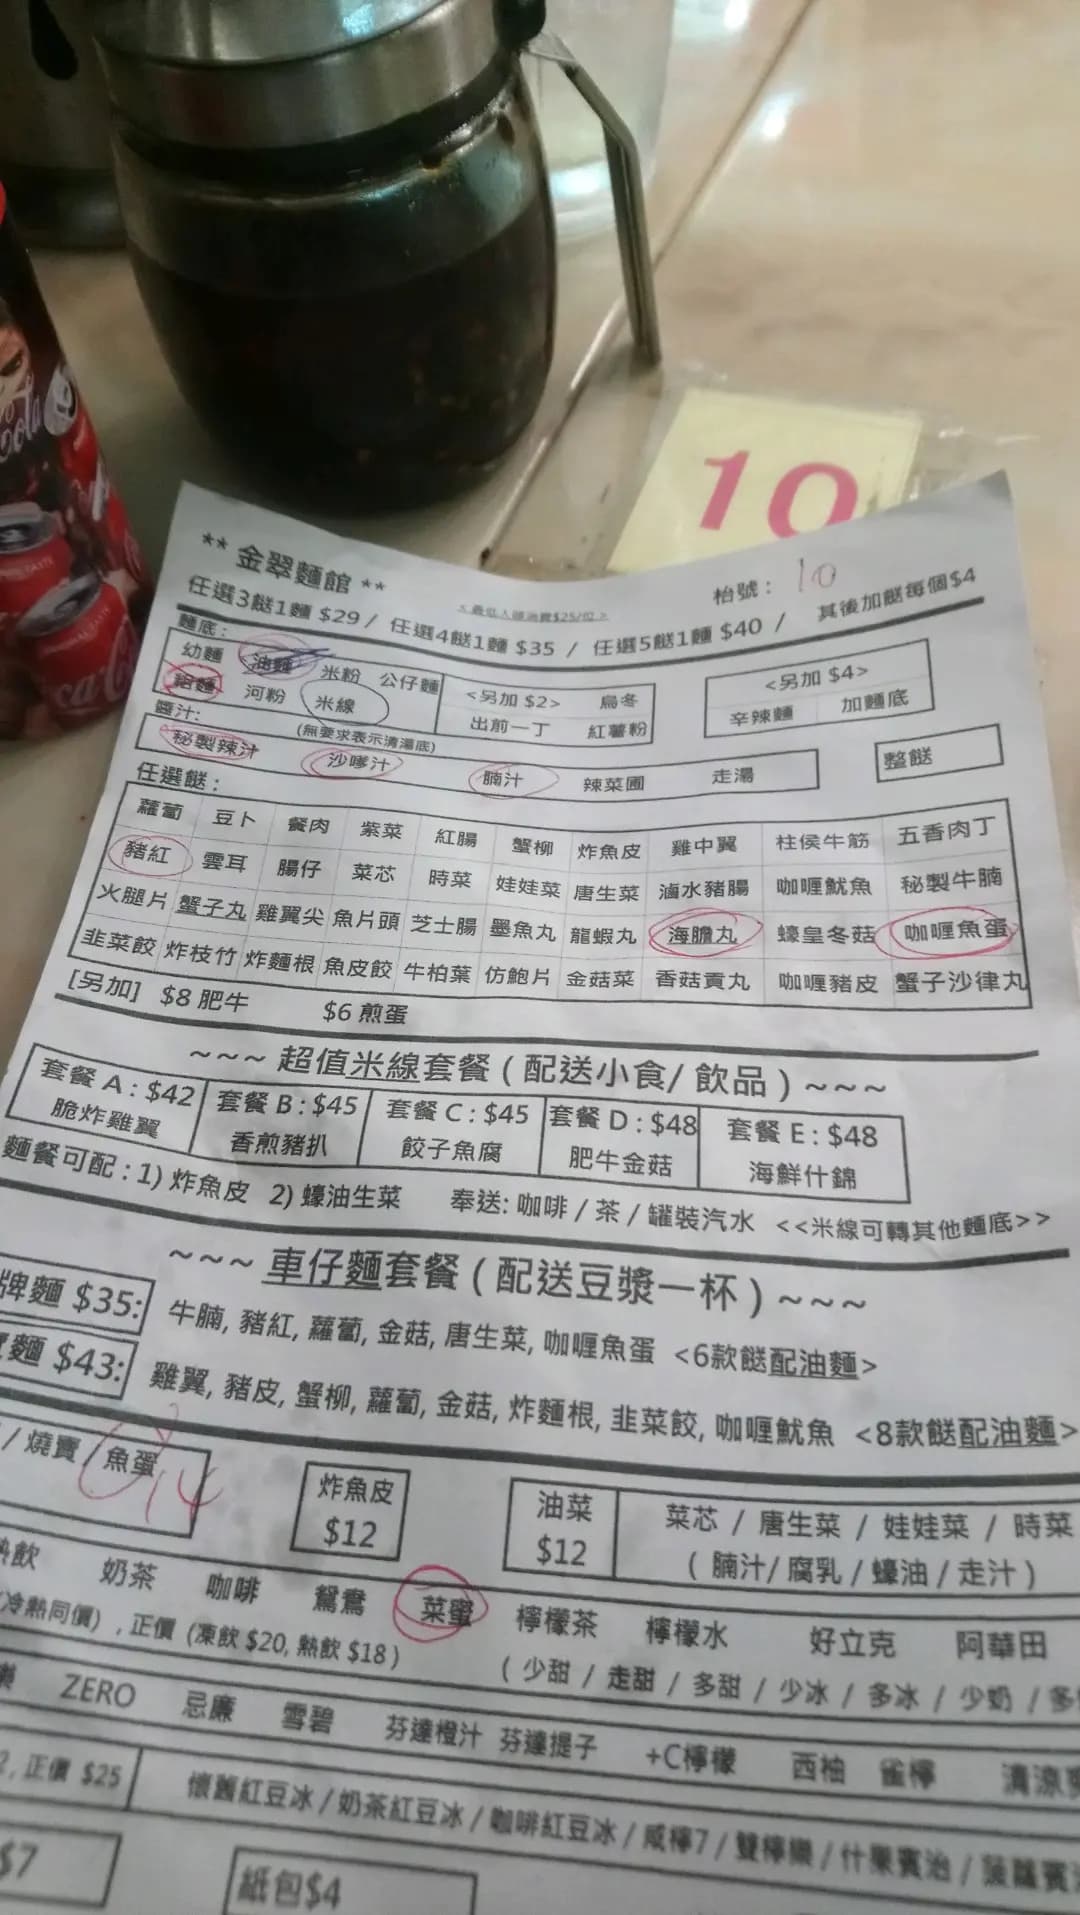 Cola
10
** 金翠麵館 **
枱號： 10
任選3餸1麵 $29 / 任選4餸1麵 $35 / 任選5餸1麵 $40 / 其後加餸每個$4
麵底：
幼麵 油麵 米粉 公仔麵
粗麵 河粉 米線
<另加 $2> 烏冬
出前一丁 紅薯粉
<另加 $4>
辛辣麵 加麵底
醬汁： (無要求表示清湯底)
秘製辣汁 沙嗲汁 腩汁 辣菜圃 走湯
整餸
任選餸：
蘿蔔 豆卜 餐肉 紫菜 紅腸 蟹柳 炸魚皮 雞中翼 柱侯牛筋 五香肉丁
豬紅 雲耳 腸仔 菜芯 時菜 娃娃菜 唐生菜 滷水豬腸 咖喱魷魚 秘製牛腩
火腿片 蟹子丸 雞翼尖 魚片頭 芝士腸 墨魚丸 龍蝦丸 海膽丸 蠔皇冬菇 咖喱魚蛋
韭菜餃 炸枝竹 炸麵根 魚皮餃 牛柏葉 仿鮑片 金菇菜 香菇貢丸 咖喱豬皮 蟹子沙律丸
[另加] $8 肥牛 $6 煎蛋
~~~ 超值米線套餐 ( 配送小食/ 飲品 ) ~~~
套餐 A : $42 套餐 B : $45 套餐 C : $45 套餐 D : $48 套餐 E : $48
脆炸雞翼 香煎豬扒 餃子魚腐 肥牛金菇 海鮮什錦
麵餐可配 : 1) 炸魚皮 2) 蠔油生菜 奉送: 咖啡 / 茶 / 罐裝汽水 <<米線可轉其他麵底>>
~~~ 車仔麵套餐 ( 配送豆漿一杯 ) ~~~
牌麵 $35: 牛腩, 豬紅, 蘿蔔, 金菇, 唐生菜, 咖喱魚蛋 <6款餸配油麵>
麵 $43: 雞翼, 豬皮, 蟹柳, 蘿蔔, 金菇, 炸麵根, 韭菜餃, 咖喱魷魚 <8款餸配油麵>
/ 燒賣 / 魚蛋
炸魚皮
$12
油菜
$12
菜芯 / 唐生菜 / 娃娃菜 / 時菜
( 腩汁/ 腐乳 / 蠔油 / 走汁 )
熱飲 奶茶 咖啡 鴛鴦 菜蜜 檸檬茶 檸檬水 好立克 阿華田
(冷熱同價) , 正價 (凍飲 $20, 熱飲 $18 ) ( 少甜 / 走甜 / 多甜 / 少冰 / 多冰 / 少奶 /
ZERO 忌廉 雪碧 芬達橙汁 芬達提子 +C檸檬 西柚 雀檸 清涼
, 正價 $25 懷舊紅豆冰 / 奶茶紅豆冰 / 咖啡紅豆冰 / 咸檸7 / 雙檸樂 / 什果賓治 / 菠蘿賓
$7
紙包$4